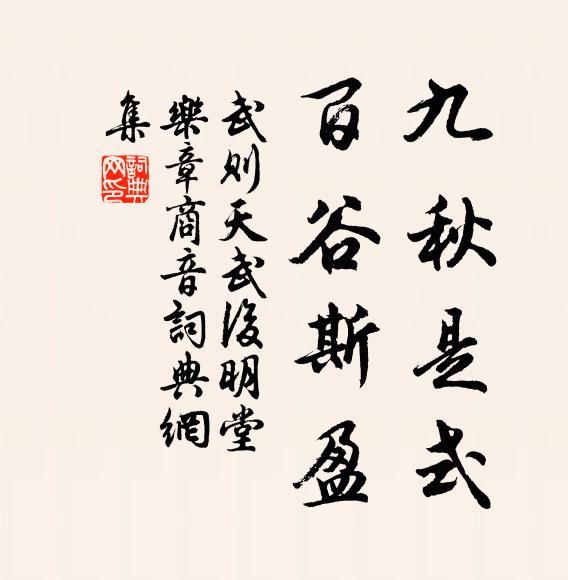 九秋是式
百谷斯盈
武則天武後明堂
樂章商音詞典網
集
詞典網印